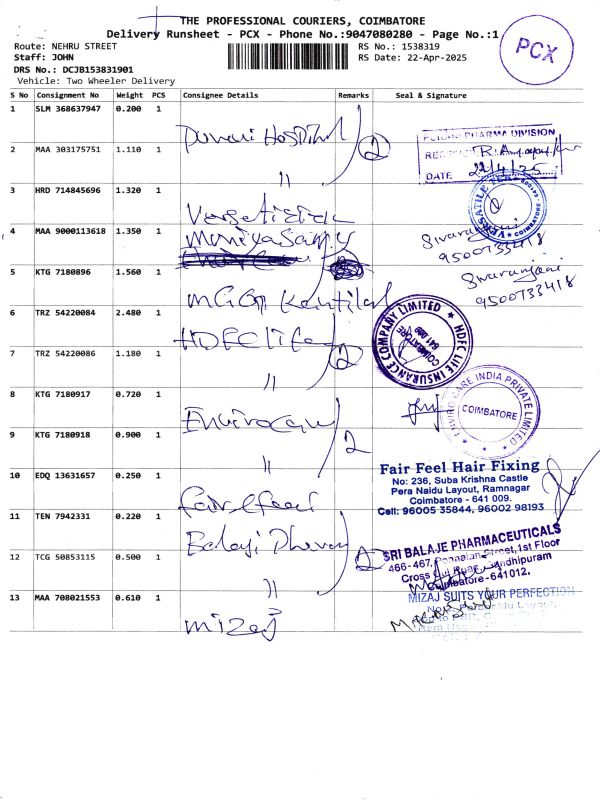 THE PROFESSIONAL COURIERS, COIMBATORE
Delivery Runsheet - PCX - Phone No.:9047080280 - Page No.:1
Route: NEHRU STREET
Staff: JOHN
DRS No.: DCJB153831901
Vehicle: Two Wheeler Delivery
RS No.: 1538319
RS Date: 22-Apr-2025
PCX
S No Consignment No Weight PCS Consignee Details Remarks Seal & Signature
1 SLM 368637947 0.200 1
Hospital 2
PHARMA DIVISION
2 MAA 303175751 1.110 1 "
DATE 22/4/25
3 HRD 714845696 1.320 1
VERSATILE
COIMBATORE
4 MAA 9000113618 1.350 1
Sivaranjani
9500733418
5 KTG 7180896 1.560 1
Sivaranjani
9500733418
6 TRZ 54220084 2.480 1
HDFC Life 2
HDFC LIFE INSURANCE COMPANY LIMITED
COIMBATORE
7 TRZ 54220086 1.180 1 "
8 KTG 7180917 0.720 1
Envirocare 2
ENVIRO CARE INDIA PRIVATE LIMITED
COIMBATORE
9 KTG 7180918 0.900 1 "
10 EDQ 13631657 0.250 1
Fair Feel Hair Fixing
No: 236, Suba Krishna Castle
Pera Naidu Layout, Ramnagar
Coimbatore - 641 009.
Cell: 96005 35844, 96002 98193
11 TEN 7942331 0.220 1
Balaji 2
SRI BALAJE PHARMACEUTICALS
466-467, Street, 1st Floor
Cross Gandhipuram
Coimbatore-641012.
12 TCG 50853115 0.500 1 "
13 MAA 708021553 0.610 1
mizaj
MIZAJ SUITS YOUR PERFECTION